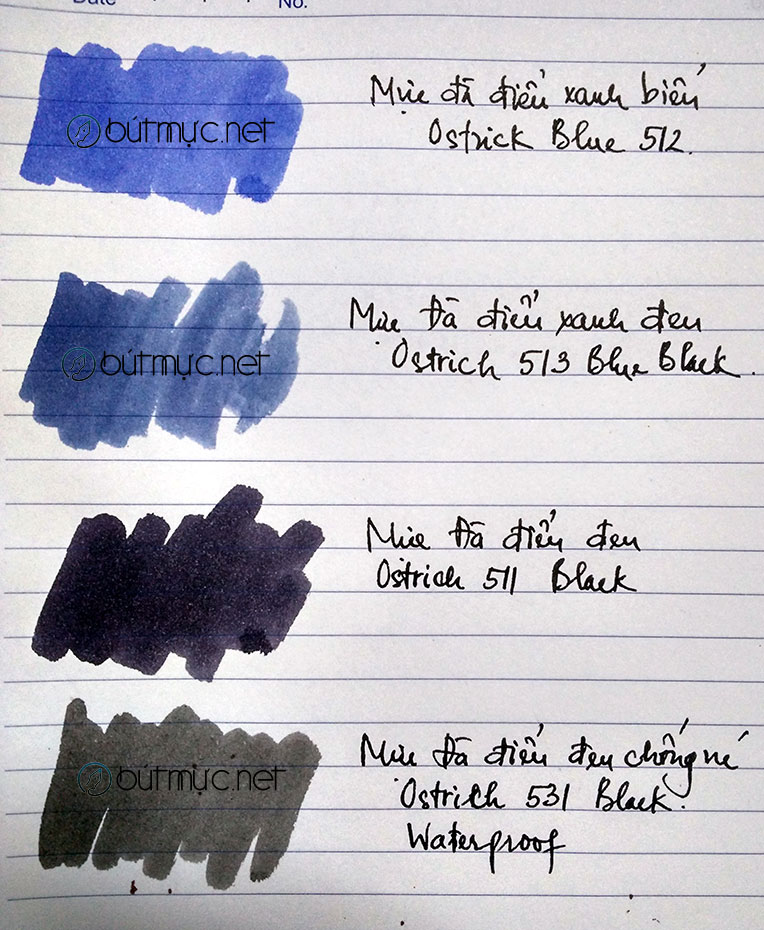 Date No.
bútmực.net
Mực đà điểu xanh biển
Ostrick Blue 512.
bútmực.net
Mực Đà điểu xanh đen
Ostrich 513 Blue Black.
Mực Đà điểu đen
Ostrich 511 Black
bútmực.net
Mực Đà điểu đen chống
Ostrich 531 Black.
Waterproof